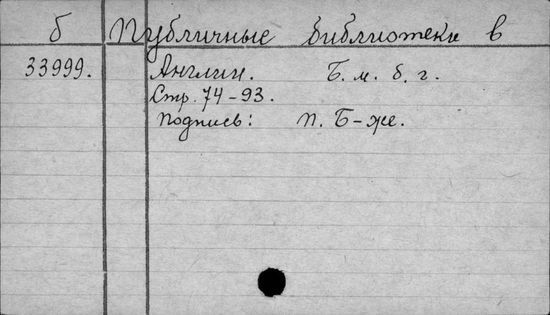 б Публичные библиотеки в
33999. Англии. Б. м. б. г.
Стр. 74-93.
Подпись: П. Б-же.